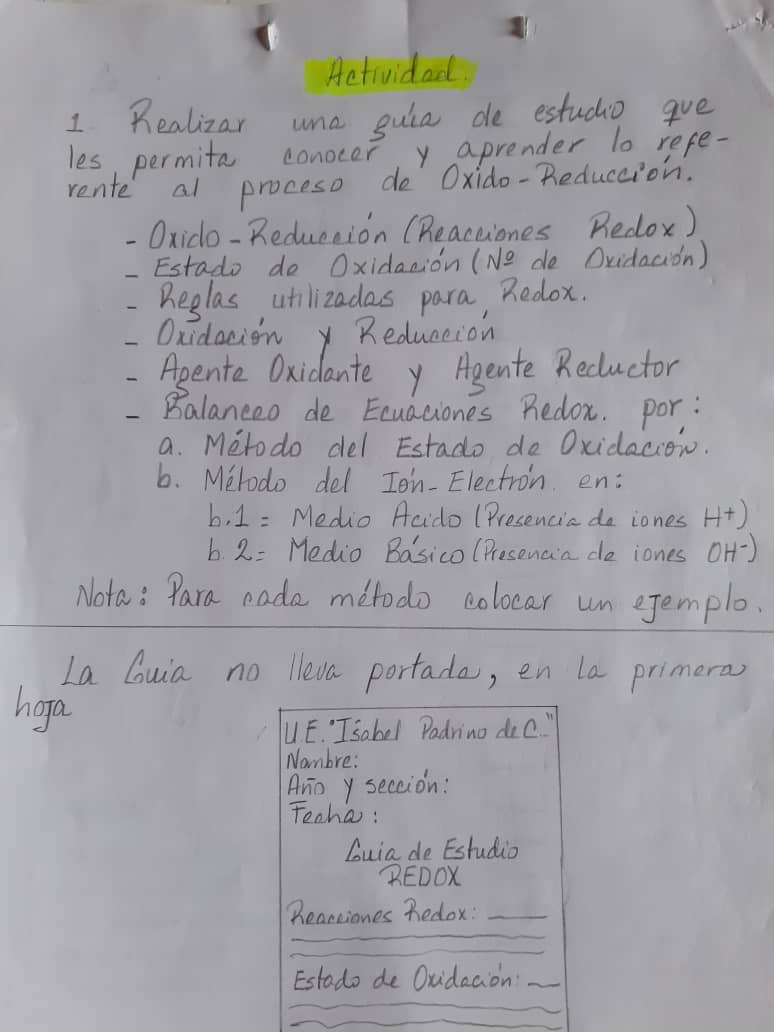 Actividad.
1. Realizar una guía de estudio que
les permita conocer y aprender lo refe-
rente al proceso de Oxido-Reducción.
- Oxido-Reducción (Reacciones Redox)
- Estado de Oxidación (Nº de Oxidación)
- Reglas utilizadas para Redox.
- Oxidación y Reducción
- Agente Oxidante y Agente Reductor
- Balanceo de Ecuaciones Redox. por:
a. Método del Estado de Oxidación.
b. Método del Ión-Electrón. en:
b.1 = Medio Acido (Presencia de iones H+)
b.2 = Medio Básico (Presencia de iones OH-)
Nota: Para cada método colocar un ejemplo.
La Guia no lleva portada, en la primera
hoja
U.E. "Isabel Padrino de C.."
Nombre:
Año y sección:
Fecha:
Guia de Estudio
REDOX
Reacciones Redox:
Estado de Oxidación: